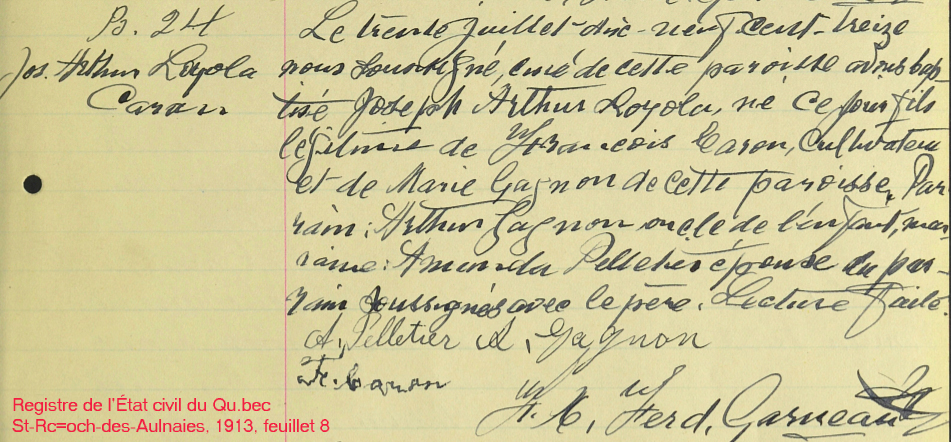 B. 24
Jos. Arthur Loyola
Caron
Le trente juillet dix-neuf cent-treize
nous soussigné, curé de cette paroisse avons bap-
tisé Joseph Arthur Loyola, né ce jour fils
légitime de François Caron, Cultivateur
et de Marie Gagnon de cette paroisse. Par-
rain: Arthur Gagnon oncle de l'enfant, mar-
raine: Amanda Pelletier épouse du par-
rain soussignés avec le père. Lecture faite.
A. Pelletier A. Gagnon
Fr. Caron
Ferd. Garneau
Registre de l'État civil du Qu.bec
St-Rc=och-des-Aulnaies, 1913, feuillet 8